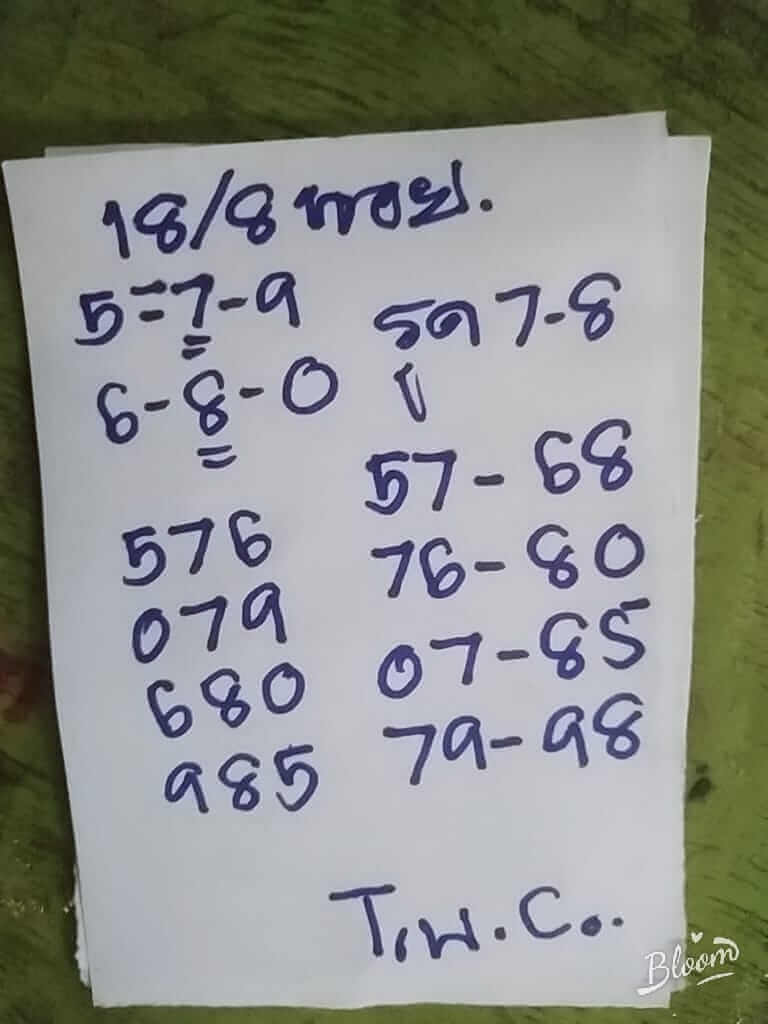 18/8 หอย.
5-7-9
6-8-0
รูด 7-8
576
079
680
985
57-68
76-80
07-85
79-98
Bloom